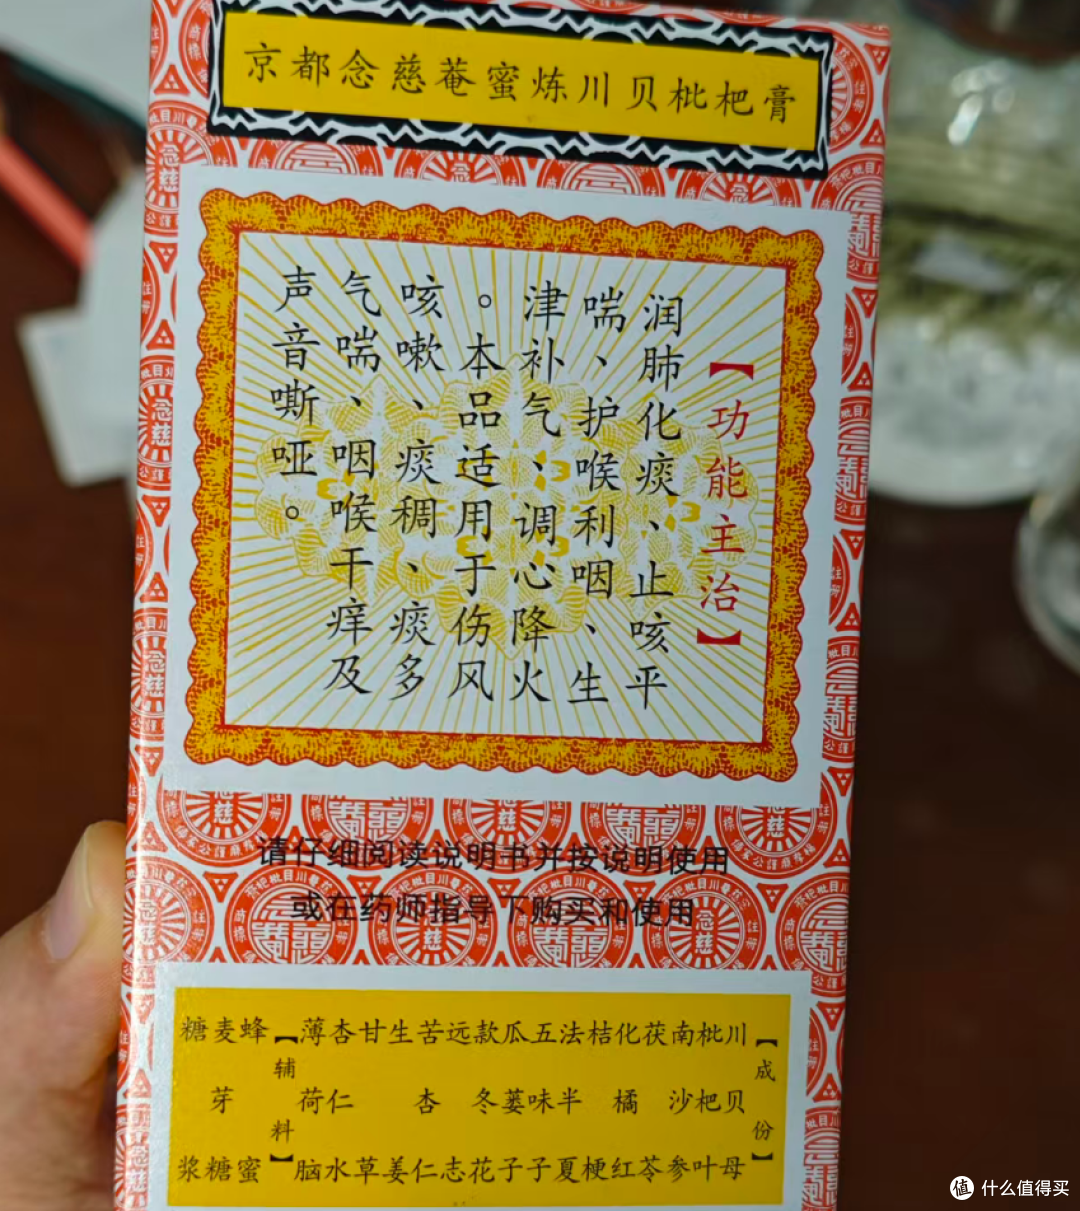 京都念慈菴蜜炼川贝枇杷膏
【功能主治】
润肺化痰、止咳平
喘、护喉利咽、生
津补气、调心降火
。本品适用于伤风
咳嗽、痰稠、痰多
气喘、咽喉干痒及
声音嘶哑。
请仔细阅读说明书并按说明使用
或在药师指导下购买和使用
【成份】
川贝母
枇杷叶
南沙参
茯苓
化橘红
桔梗
法半夏
五味子
瓜蒌子
款冬花
远志
苦杏仁
生姜
甘草
杏仁水
薄荷脑
【辅料】
蜂蜜
麦芽糖
糖浆
值 什么值得买